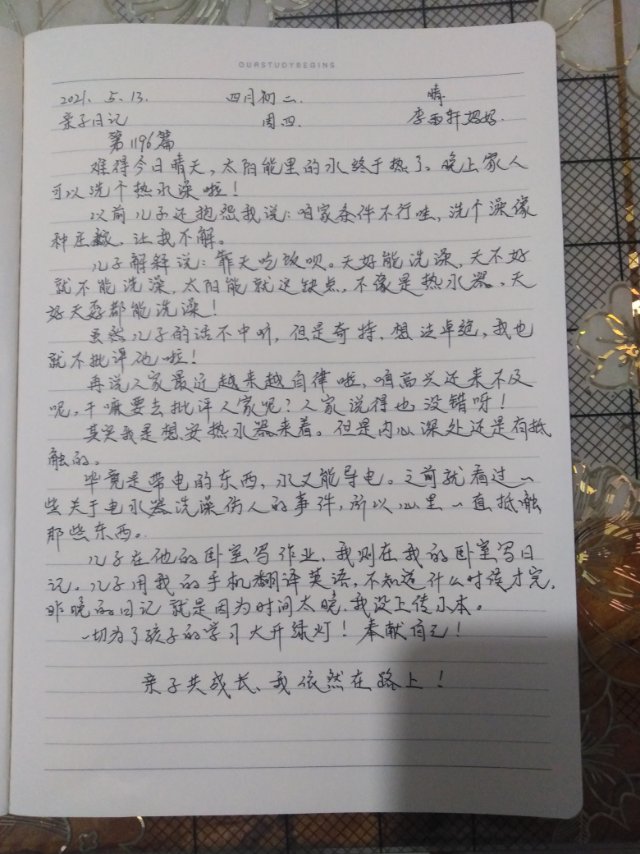 OURSTUDYBEGINS
2021. 5. 13. 四月初二. 晴
亲子日记 周四. 李雨轩妈妈.
第1196篇
难得今日晴天,太阳能里的水终于热了。晚上家人
可以洗个热水澡啦!
以前儿子还抱怨我说:咱家条件不行哇,洗个澡像
种庄稼,让我不解。
儿子解释说:靠天吃饭呗。天好能洗澡,天不好
就不能洗澡,太阳能就这缺点,不像是热水器。天
好天孬都能洗澡!
虽然儿子的话不中听,但是奇特、想法卓绝,我也
就不批评他啦!
再说人家最近越来越自律啦,咱高兴还来不及
呢,干嘛要去批评人家呢?人家说得也没错呀!
其实我是想安热水器来着。但是内心深处还是有抵
触的。
毕竟是带电的东西,水又能导电。之前就看过一
些关于电水器洗澡伤人的事件,所以心里一直抵触
那些东西。
儿子在他的卧室写作业,我则在我的卧室写日
记。儿子用我的手机翻译英语,不知道什么时候才完,
昨晚的日记就是因为时间太晚,我没上传小本。
一切为了孩子的学习大开绿灯!奉献自己!
亲子共成长、我依然在路上!